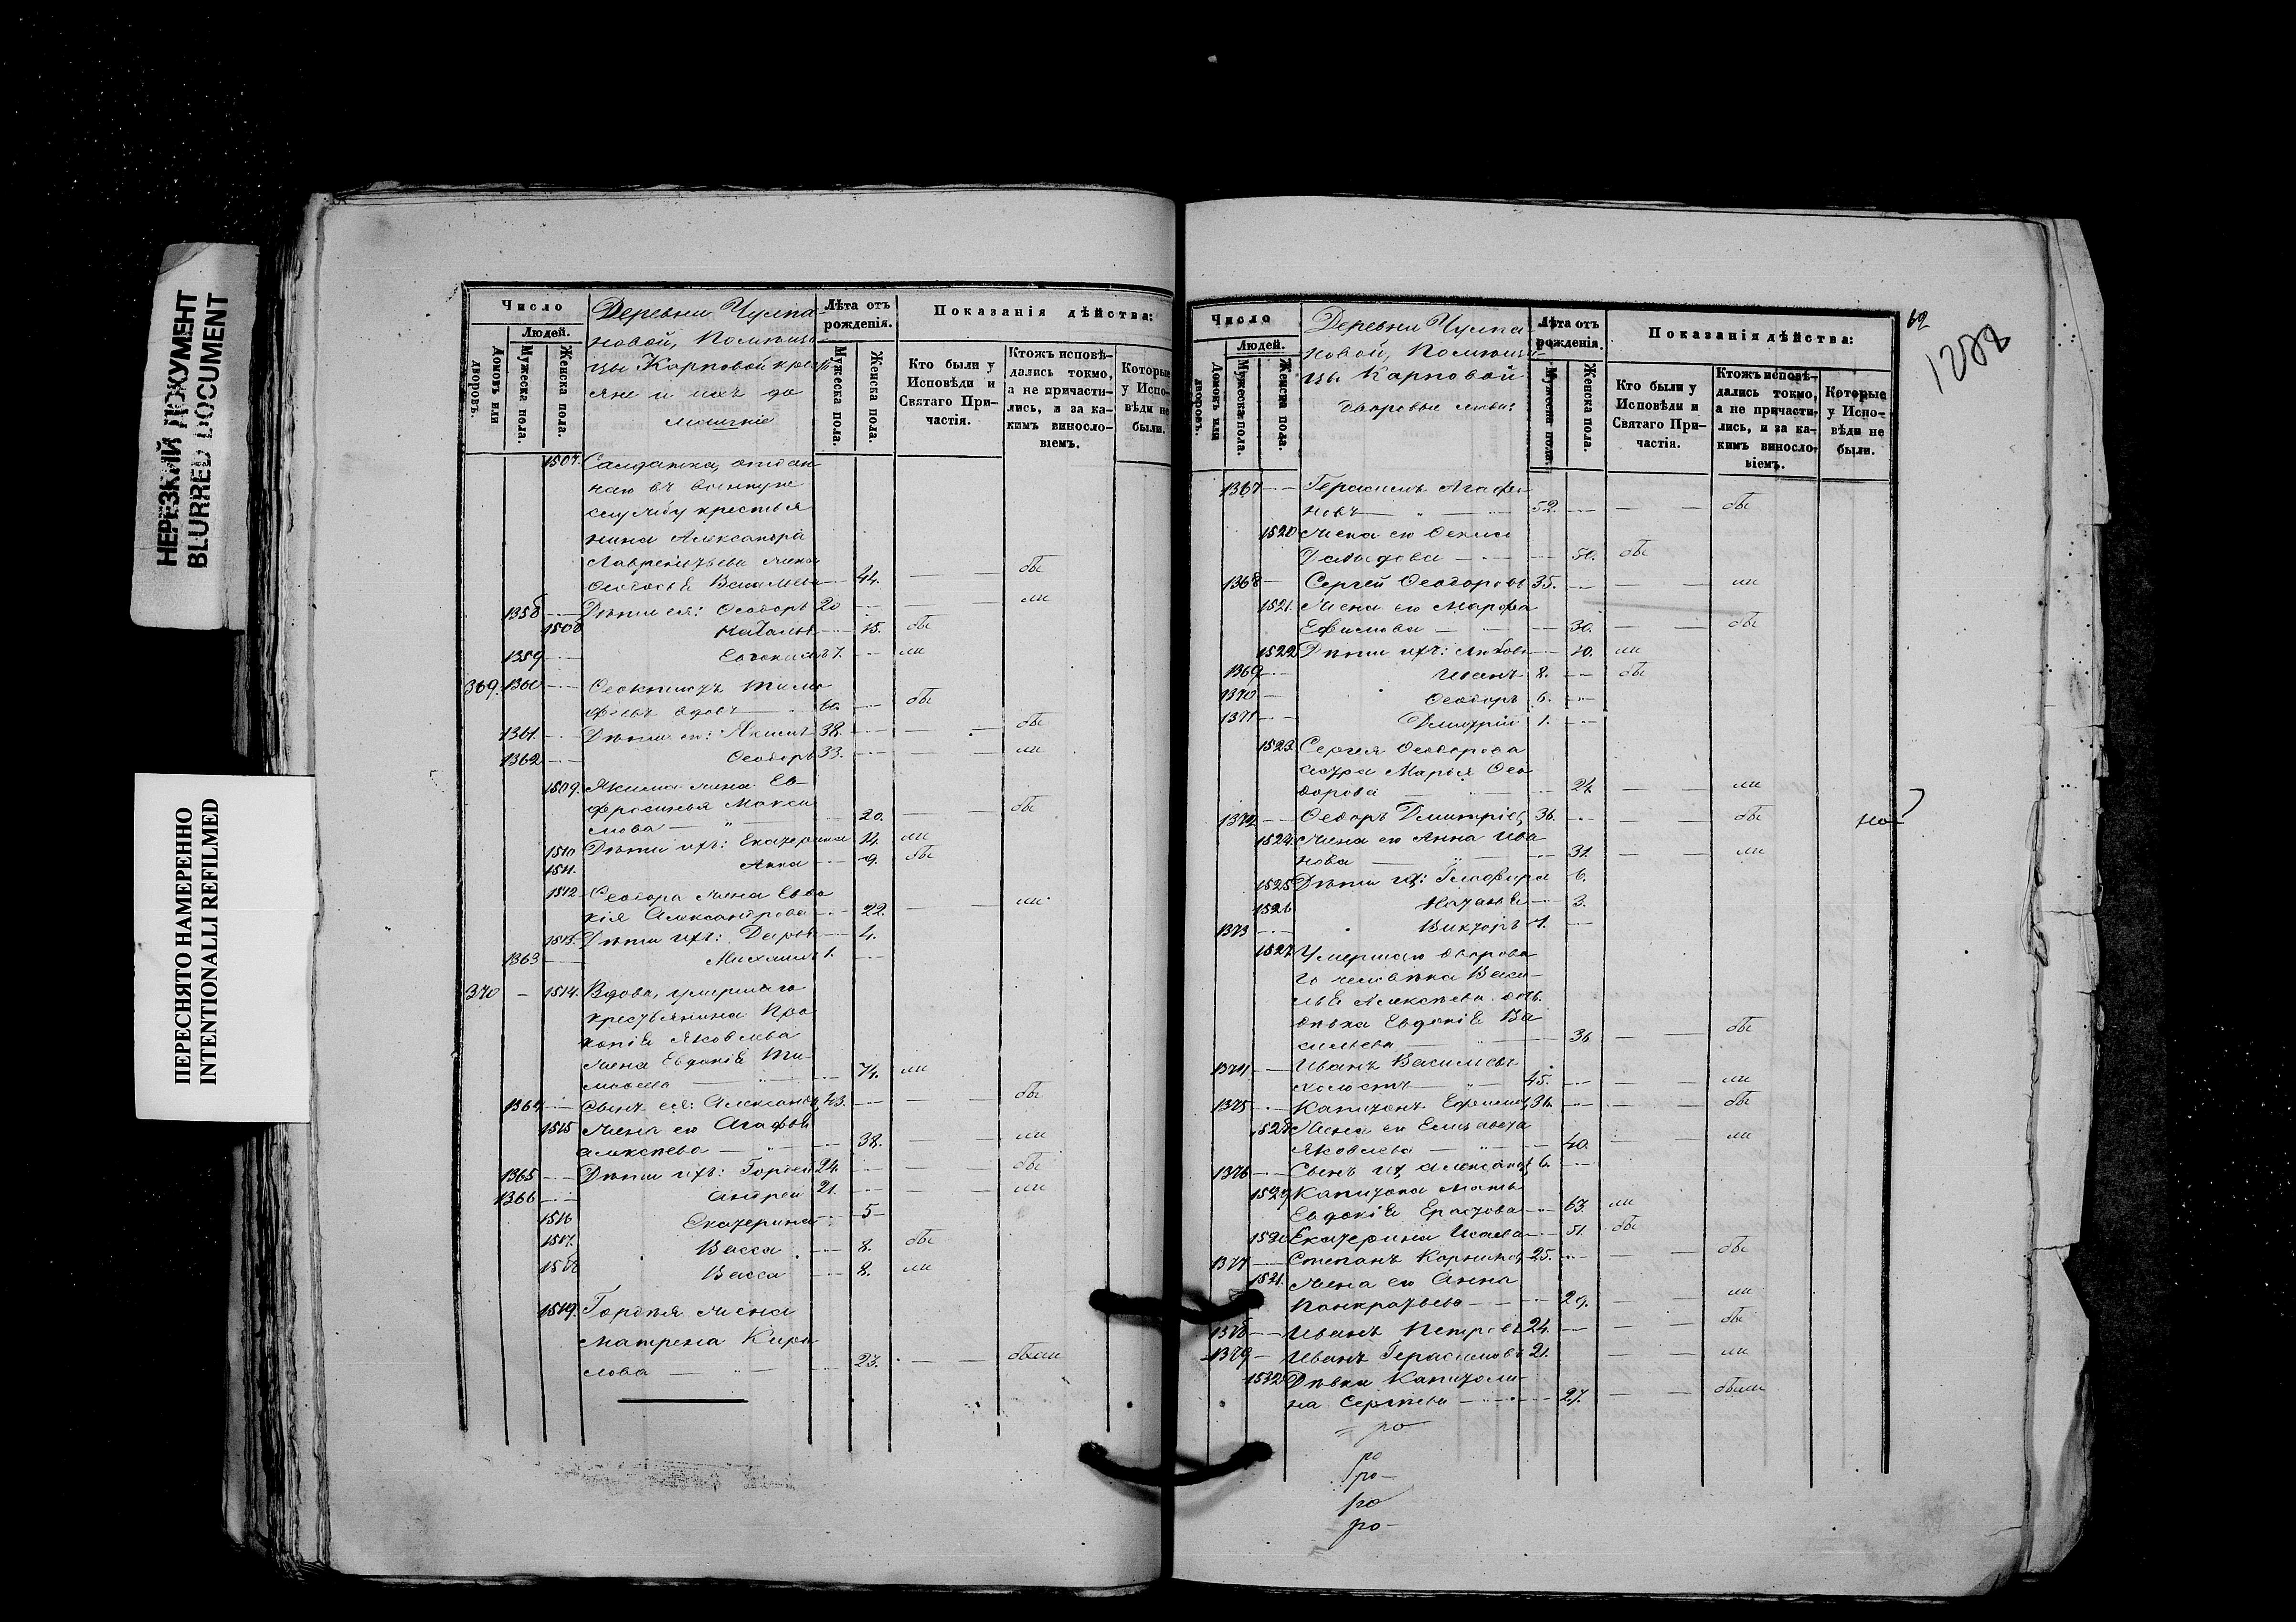 НЕРЕЗКИЙ ДОКУМЕНТ
BLURRED DOCUMENT
ПЕРЕСНЯТО НАМЕРЕННО
INTENTIONALLI REFILMED
Число
Людей.
Домовъ или дворовъ.
Мужеска пола.
Женска пола.
Деревни Чулпа-
новой, Помѣщи-
цы Карповой крестья
яне и ихъ до
машніе
Лѣта отъ рожденія.
Мужеска пола.
Женска пола.
Показанія дѣйства:
Кто были у Исповѣди и Святаго Причастія.
Ктожъ исповѣдались токмо, а не причастились, и за какимъ винословіемъ.
Которые у Исповѣди не были.
1507. Салдатка, отдан
наго въ военную
службу крестья
нина Александра
Лаврентьева жена
Ѳеодосья Васильева 44. бы
1358 Дѣти ея: Ѳеодоръ 20 ли
1508 Наталья 15. бы
1359 Евдокимъ 7. ли
369. 1360 Ѳеоктистъ Тимо
феевъ вдовъ 60. бы
1361. Дѣти его: Якимъ 38. бы
1362 Ѳеодоръ 33. ли
1509. Якима жена Ев-
фросинья Макси
мова 20. бы
1510 Дѣти ихъ: Екатерина 14. ли
1511. Анна 9. бы
1512 Ѳеодора жена Евдо
кія Александрова 22. ли
1513. Дѣти ихъ: Дарья 4.
1363 Михаилъ 1.
370 1514. Вдова, умершаго
крестьянина Про
копія Яковлева
жена Евдокія Ти-
мофеева 74. ли
1364 Сынъ ея: Александръ 43. бы
1515 Жена его Агафья
Алексѣева 38. ли
1365 Дѣти ихъ: Гордей 24. бы
1366 Андрей 21. ли
1516 Екатерина 5
1517. Васса 8. бы
1518 Васса 8. ли
1519. Гордѣя жена
Матрена Кири
лова 23. были
Число
Людей.
Домовъ или дворовъ.
Мужеска пола.
Женска пола.
Деревни Чулпа-
новой, Помѣщи-
цы Карповой
дворовые люди:
Лѣта отъ рожденія.
Мужеска пола.
Женска пола.
Показанія дѣйства:
Кто были у Исповѣди и Святаго Причастія.
Ктожъ исповѣдались токмо, а не причастились, и за какимъ винословіемъ.
Которые у Исповѣди не были.
1367 Герасимъ Агафо
новъ 52. бы
1520 Жена его
Давыдова 50. бы
1368 Сергей Ѳеодоровъ 35. ли
1521. Жена его Марфа
Ефимова 30. бы
1522 Дѣти ихъ: Любовь 10. ли
1369 Иванъ 8. бы
1370 Ѳеодоръ 6.
1371 Дмитрій 1.
1523 Сергея Ѳеодорова
сестра Марья Ѳео
дорова 24 ли
1372 Ѳедоръ Дмитріев 36. бы
1524. Жена его Анна Ива
нова 31. ли
1525 Дѣти их: Глафира 6.
1526 Наталья 3.
1373 Викторъ 1.
1527 Умершаго дворова
го человѣка Васи-
лья Алексѣева дочь
дѣвка Евдокія Ва
сильева 36 бы
1374 Иванъ Васильевъ
холостъ 45. ли
1375 Капитонъ Ефимов 36. бы
1528 Жена его Елизавета
Яковлева 40. ли
1376 Сынъ их Александръ 6.
1529 Капитона мать
Евдокія Ерастова 63. ли
1530 Екатерина Исаева 51. бы
1377 Степанъ Корнилов 25. бы
1531. Жена его Анна
Панкратьева 29. ли
1378 Иванъ Петровъ 24. бы
1379 Иванъ Герасимовъ 21. ли
1532 Дѣвка Капитоли-
на Сергѣева 27. были
ро
ро
ро
ро
ро